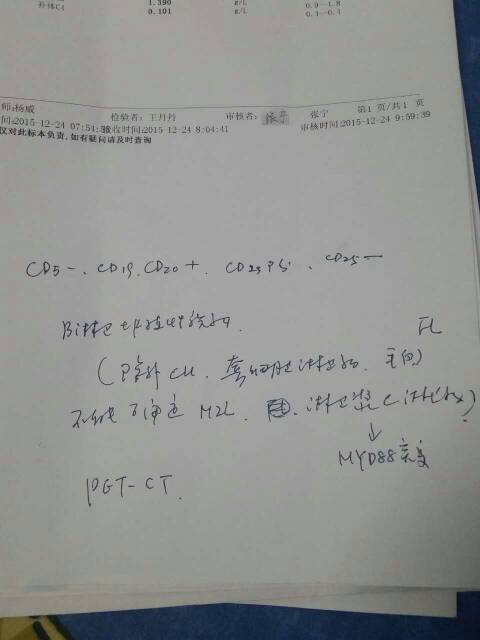 补体C4 1.390 g/L 0.9--1.8
0.101 g/L 0.1--0.4
师:杨威 检验者:王月丹 审核者:张宁 张宁 第1 页/共1 页
间:2015-12-24 07:54:38 接收时间:2015-12-24 8:04:41 审核时间:2015-12-24 9:59:39
仅对此标本负责,如有疑问请及时查询
CD5-、CD19、CD20+、CD23 、CD25-
B淋巴增殖性疾病 FL
(除外CLL、套细胞淋巴瘤、毛白)
不能 MZL、淋巴浆 )?
↓
MYD88突变
PET-CT